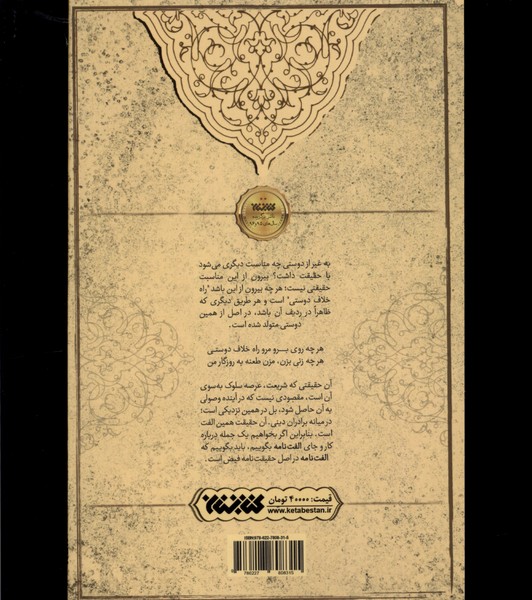 به غیر از دوستی چه مناسبت دیگری می‌شود
با حقیقت داشت؟ بیرون از این مناسبت
حقیقتی نیست؛ هر چه بیرون از این باشد "راه
خلاف دوستی" است و هر طریق دیگری که
ظاهراً در ردیف آن باشد، در اصل از همین
دوستی متولد شده است.
هر چه روی برو مرو راه خلاف دوستی
هر چه زنی بزن، مزن طعنه به روزگار من
آن حقیقتی که شریعت، عرصه سلوک به‌سوی
آن است، مقصودی نیست که در آینده وصولی
به آن حاصل شود، بل در همین نزدیکی است؛
در میانه برادران دینی. آن حقیقت همین الفت
است. بنابراین اگر بخواهیم یک جمله درباره
کار و جای الفت‌نامه بگوییم، باید بگوییم که
الفت‌نامه در اصل حقیقت‌نامه فیض است.
قیمت: ۴۰۰۰۰ تومان
www.ketabestan.ir
کتابستان